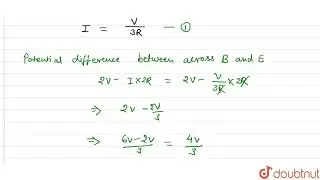 I = V/3R — ①
Potential difference between across B and E
2V - I×2R = 2V - V/3R × 2R
⇒ 2V - 2V/3
⇒ 6V-2V/3 = 4V/3
doubtnut